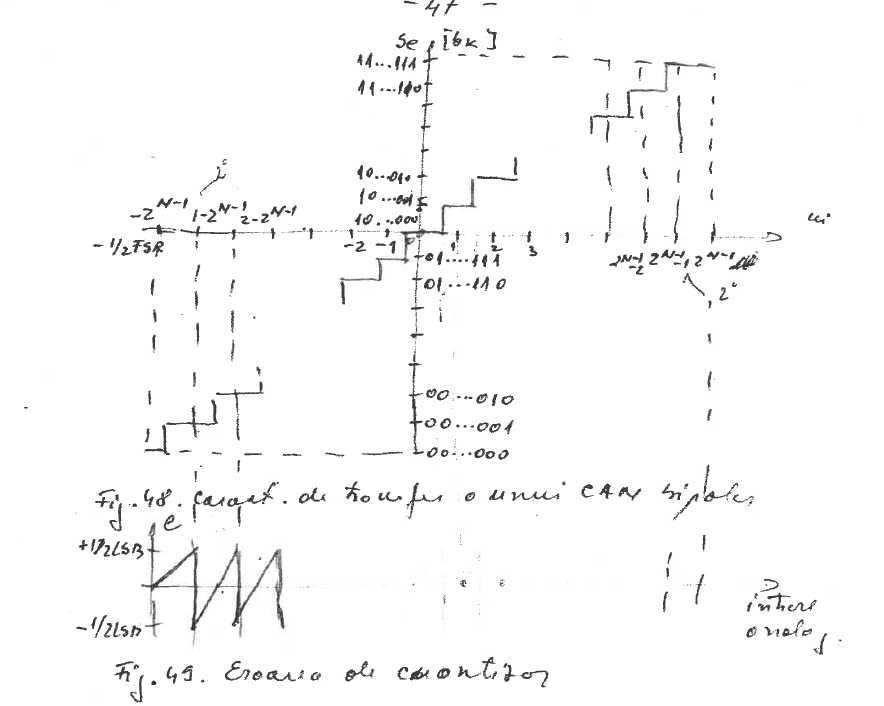 - 47 -
Se [bk]
11...111
11...110
10...010
10...001
10...000
-2^N-1 1-2^N-1 2-2^N-1
-1/2 FSR
-2 -1 1 2 3
ui
01...111
01...110
2^N-1-2 2^N-1-1 2^N-1
00...010
00...001
00...000
Fig. 48. Caract. de transfer a unui CAN bipolar
e
+1/2LSB
-1/2LSB
intrare
analog.
Fig. 49. Eroarea de cuantizare